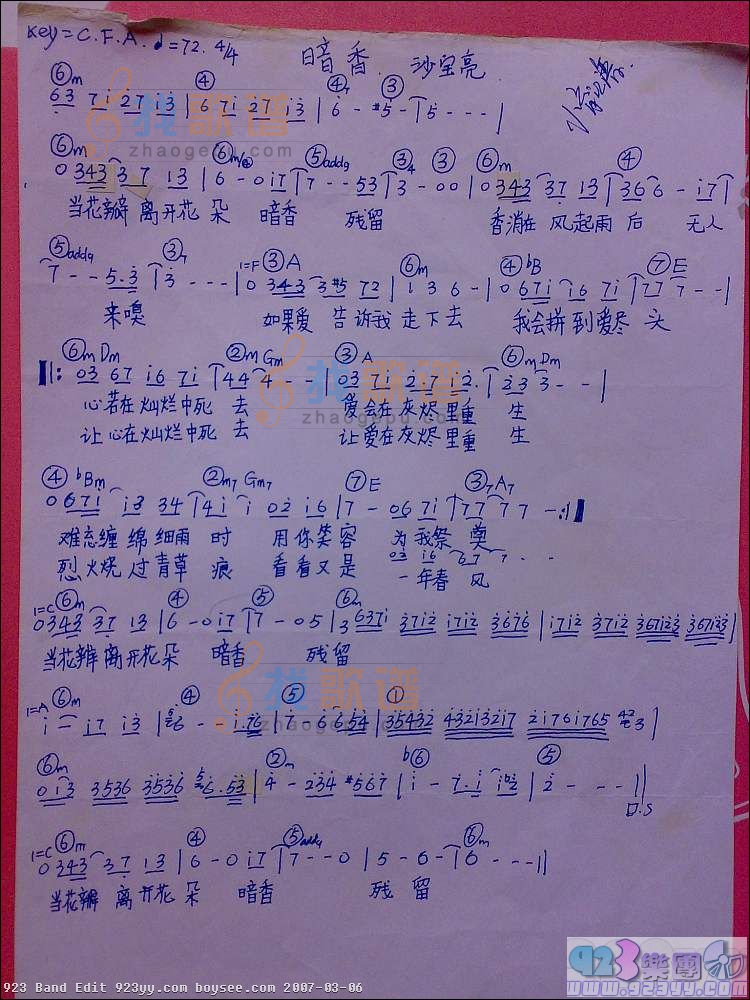 Key=C.F.A. ♩=72. 4/4
暗香 沙宝亮
⑥m ④ ④7 ③
63 7i 27 i3 | 6 7i 27 i3 | 6 - #5 - | 5 - - - |
⑥m ⑥m/ ⑤add9 ③4 ③ ⑥m ④
0 343 37 13 | 6 - 0i7 | 7 - - 53 | 3 - 00 | 0 343 37 13 | 366 - i7 |
当花瓣 离开花 朵 暗香 残留 香消在 风起雨 后 无人
⑤add9 ③7 1=F ③A ⑥m ④bB ⑦E
7 - - 5.3 | 3 - - - | 0 343 3#5 72 | 1 3 6 - | 0 67i i6 7i | 77 7 - - |
来嗅 如果爱 告诉我 走下去 我会拼到爱尽 头
⑥m Dm ②m Gm ③ A ⑥m Dm
‖: 03 67 i6 7i | 44 4 - - | 03 7i 27 i2. | 23 3 - - |
心若在灿烂中死 去 爱会在灰烬里重 生
让心在灿烂中死 去 让爱在灰烬里重 生
④ bBm ②m7 Gm7 ⑦ E ③7 A7
0 67i i3 34 | 4i i 02 i6 | 7 - 06 7i | 77 7 7 - :‖
难忘缠 绵细雨 时 用你笑容 为我祭 奠
03 i6 67 7 - -
烈火烧 过青草 痕 看看又是 一年春 风
1=C ⑥m ④ ⑤ ⑥m
0 343 37 13 | 6 - 0i7 | 7 - 05 | 3 637i 37i2 i7i2 3676 | i7i2 37i2 367i23 367i23 |
当花瓣 离开花 朵 暗香 残留
1=A ⑥m ④ ⑤ ①
i - i7 i3 | 6 - - i.76 | 7 - 6 654 | 35432 43213217 2i76i765 3 |
⑥m ②m b⑥ ⑤
0i3 3536 3536 6.53 | 4 - 234 #567 | i - 7.i | 2 - - - ‖
D.S
1=C ⑥m ④ ⑤add9 ⑥m
0 343 37 13 | 6 - 0 i7 | 7 - - 0 | 5 - 6 - | 6 - - - ‖
当花瓣 离开花 朵 暗香 残 留
找歌谱
zhaogepu.com
找歌谱
zhaogepu.com
找歌谱
找歌谱
923樂團
www.923yy.com
923 Band Edit 923yy.com boysee.com 2007-03-06